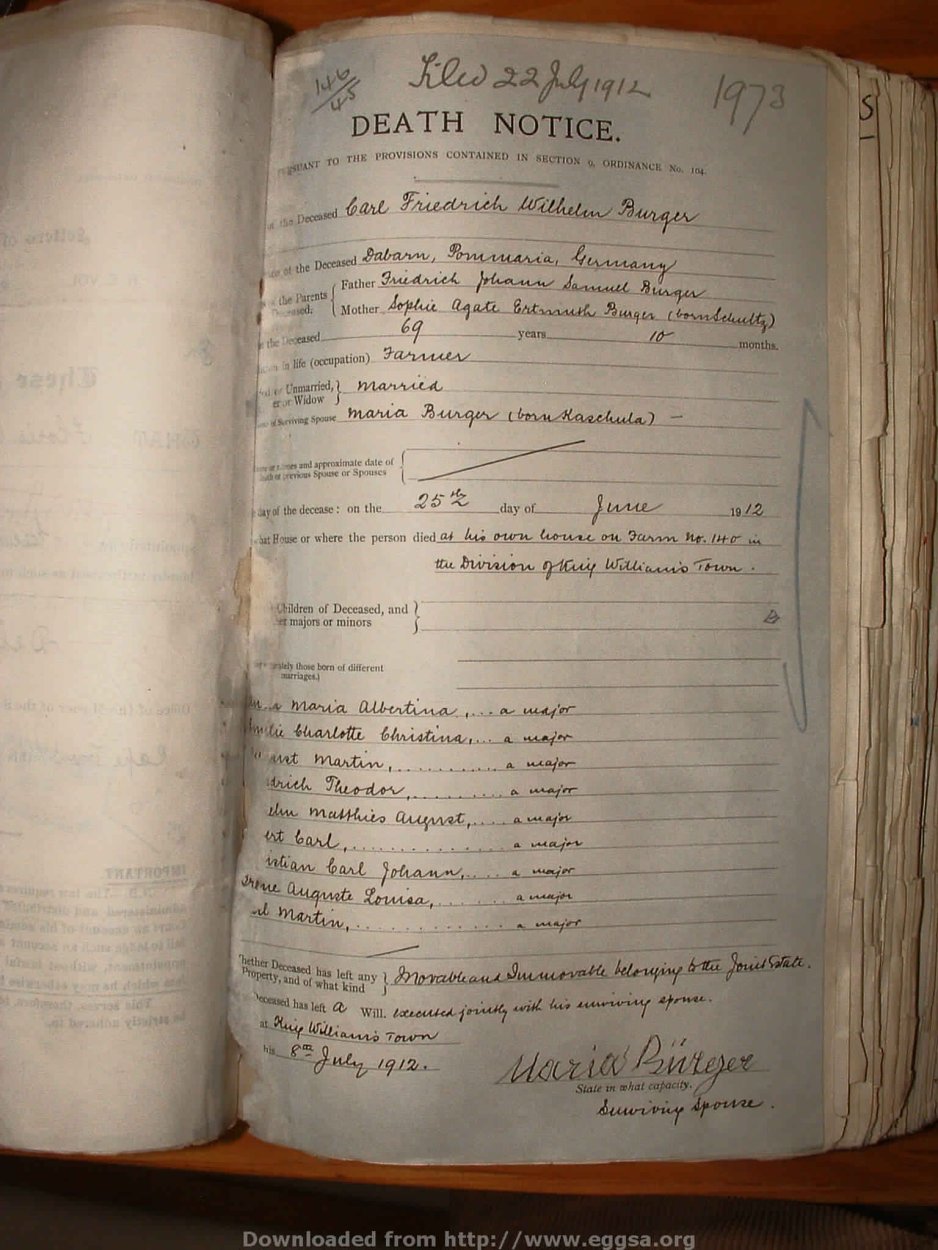 146/45 Filed 22 July 1912 1973
DEATH NOTICE.
PURSUANT TO THE PROVISIONS CONTAINED IN SECTION 9, ORDINANCE No. 104.
of the Deceased Carl Friedrich Wilhelm Burger
of the Deceased Dabarn, Pommaria, Germany
the Parents { Father Friedrich Johann Samuel Burger
Mother Sophie Agate Ertmuth Burger (born Schultz)
the Deceased 69 years 10 months.
in life (occupation) Farmer
or Unmarried, } Married
or Widow
of Surviving Spouse Maria Burger (born Kaschula) —
and approximate date of {
of previous Spouse or Spouses
day of the decease: on the 25th day of June 1912
House or where the person died at his own house on Farm No. 140 in
the Division of King William's Town.
Children of Deceased, and }
majors or minors
those born of different
marriages.)
Maria Albertina, ... a major
Charlotte Christina, ... a major
Martin, .......... a major
Theodor, .......... a major
Matthies August, .... a major
Carl, .............. a major
Carl Johann, .... a major
Auguste Louisa, ..... a major
Martin, ............ a major
Whether Deceased has left any } Movable and Immovable belonging to the Joint Estate.
Property, and of what kind
Deceased has left a Will. executed jointly with his surviving spouse.
at King William's Town
this 8th July 1912.
Maria Bürger
State in what capacity.
Surviving Spouse.
IMPORTANT.
Downloaded from http://www.eggsa.org